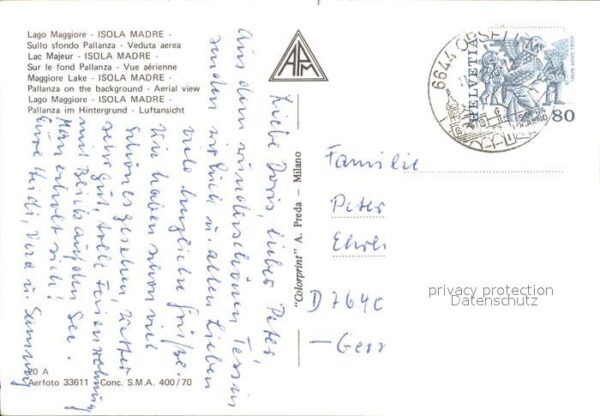 Lago Maggiore - ISOLA MADRE -
Sullo sfondo Pallanza - Veduta aerea
Lac Majeur - ISOLA MADRE -
Sur le fond Pallanza - Vue aérienne
Maggiore Lake - ISOLA MADRE -
Pallanza on the background - Aerial view
Lago Maggiore - ISOLA MADRE -
Pallanza im Hintergrund - Luftansicht
20 A
Aerfoto 33611 - Conc. S.M.A. 400/70
"Colorprint" A. Preda - Milano
APM
Liebe Doris, lieber Peter,
Aus dem wunderschönen Tessin
senden wir Euch u. allen Lieben
viele herzliche Grüße.
Wir haben schon viel
Schönes gesehen, Wetter
sehr gut, tolle Ferienwohnung
mit Blick auf den See.
Man erholt sich!
Eure Heidi,
HELVETIA
80
6644 ORSELINA
Familie
Peter
D 764
Gerr
privacy protection
Datenschutz